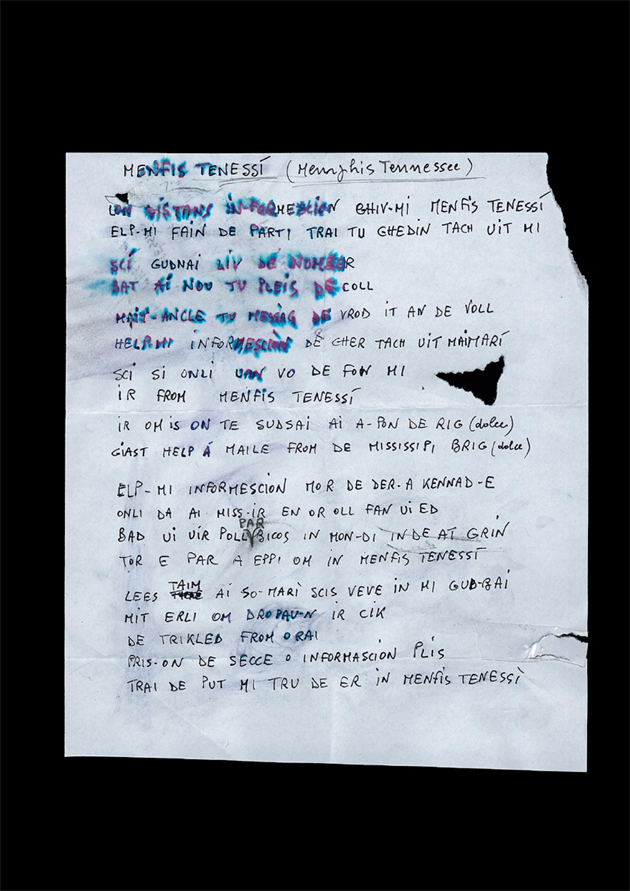 MENFIS TENESSÍ (Memphis Tennessee)
LON DISTANS IN-FORMESCION GHIV-MI MENFIS TENESSÍ
ELP-MI FAIN DE PARTI TRAI TU GHEDIN TACH UIT MI
SCÍ GUDNAI LIV DE NOMBER
BAT AI NOU TU PLEIS DE COLL
MAIT-ANCLE TU MESSAG DE VROD IT AN DE VOLL
HELP.MI INFORMESCION DE GHER TACH UIT MAIMARÍ
SCI SI ONLI UAN VO DE FON MI
IR FROM MENFIS TENESSÍ
IR OM IS ON TE SUDSAI AI A-PON DE RIG (dolce)
GIAST HELP A MAILE FROM DE MISSISSIPI BRIG (dolce)
ELP-MI INFORMESCION MOR DE DER.A KENNAD-E
ONLI DA AI MISS-IR EN OR OLL FAN UI ED
PAR
BAD UI UIR POLL BICOS IN MON-DI INDE AT GRIN
TOR E PAR A EPPI OM IN MENFIS TENESSÍ
TAIM
LEES AI SO-MARÌ SCIS VEVE IN MI GUD-BAI
MIT ERLI OM DROPAU-N IR CIK
DE TRIKLED FROM O RAI
PRIS-ON DE SECCE O INFORMASCION PLIS
TRAI DE PUT MI TRU DE ER IN MENFIS TENESSÌ